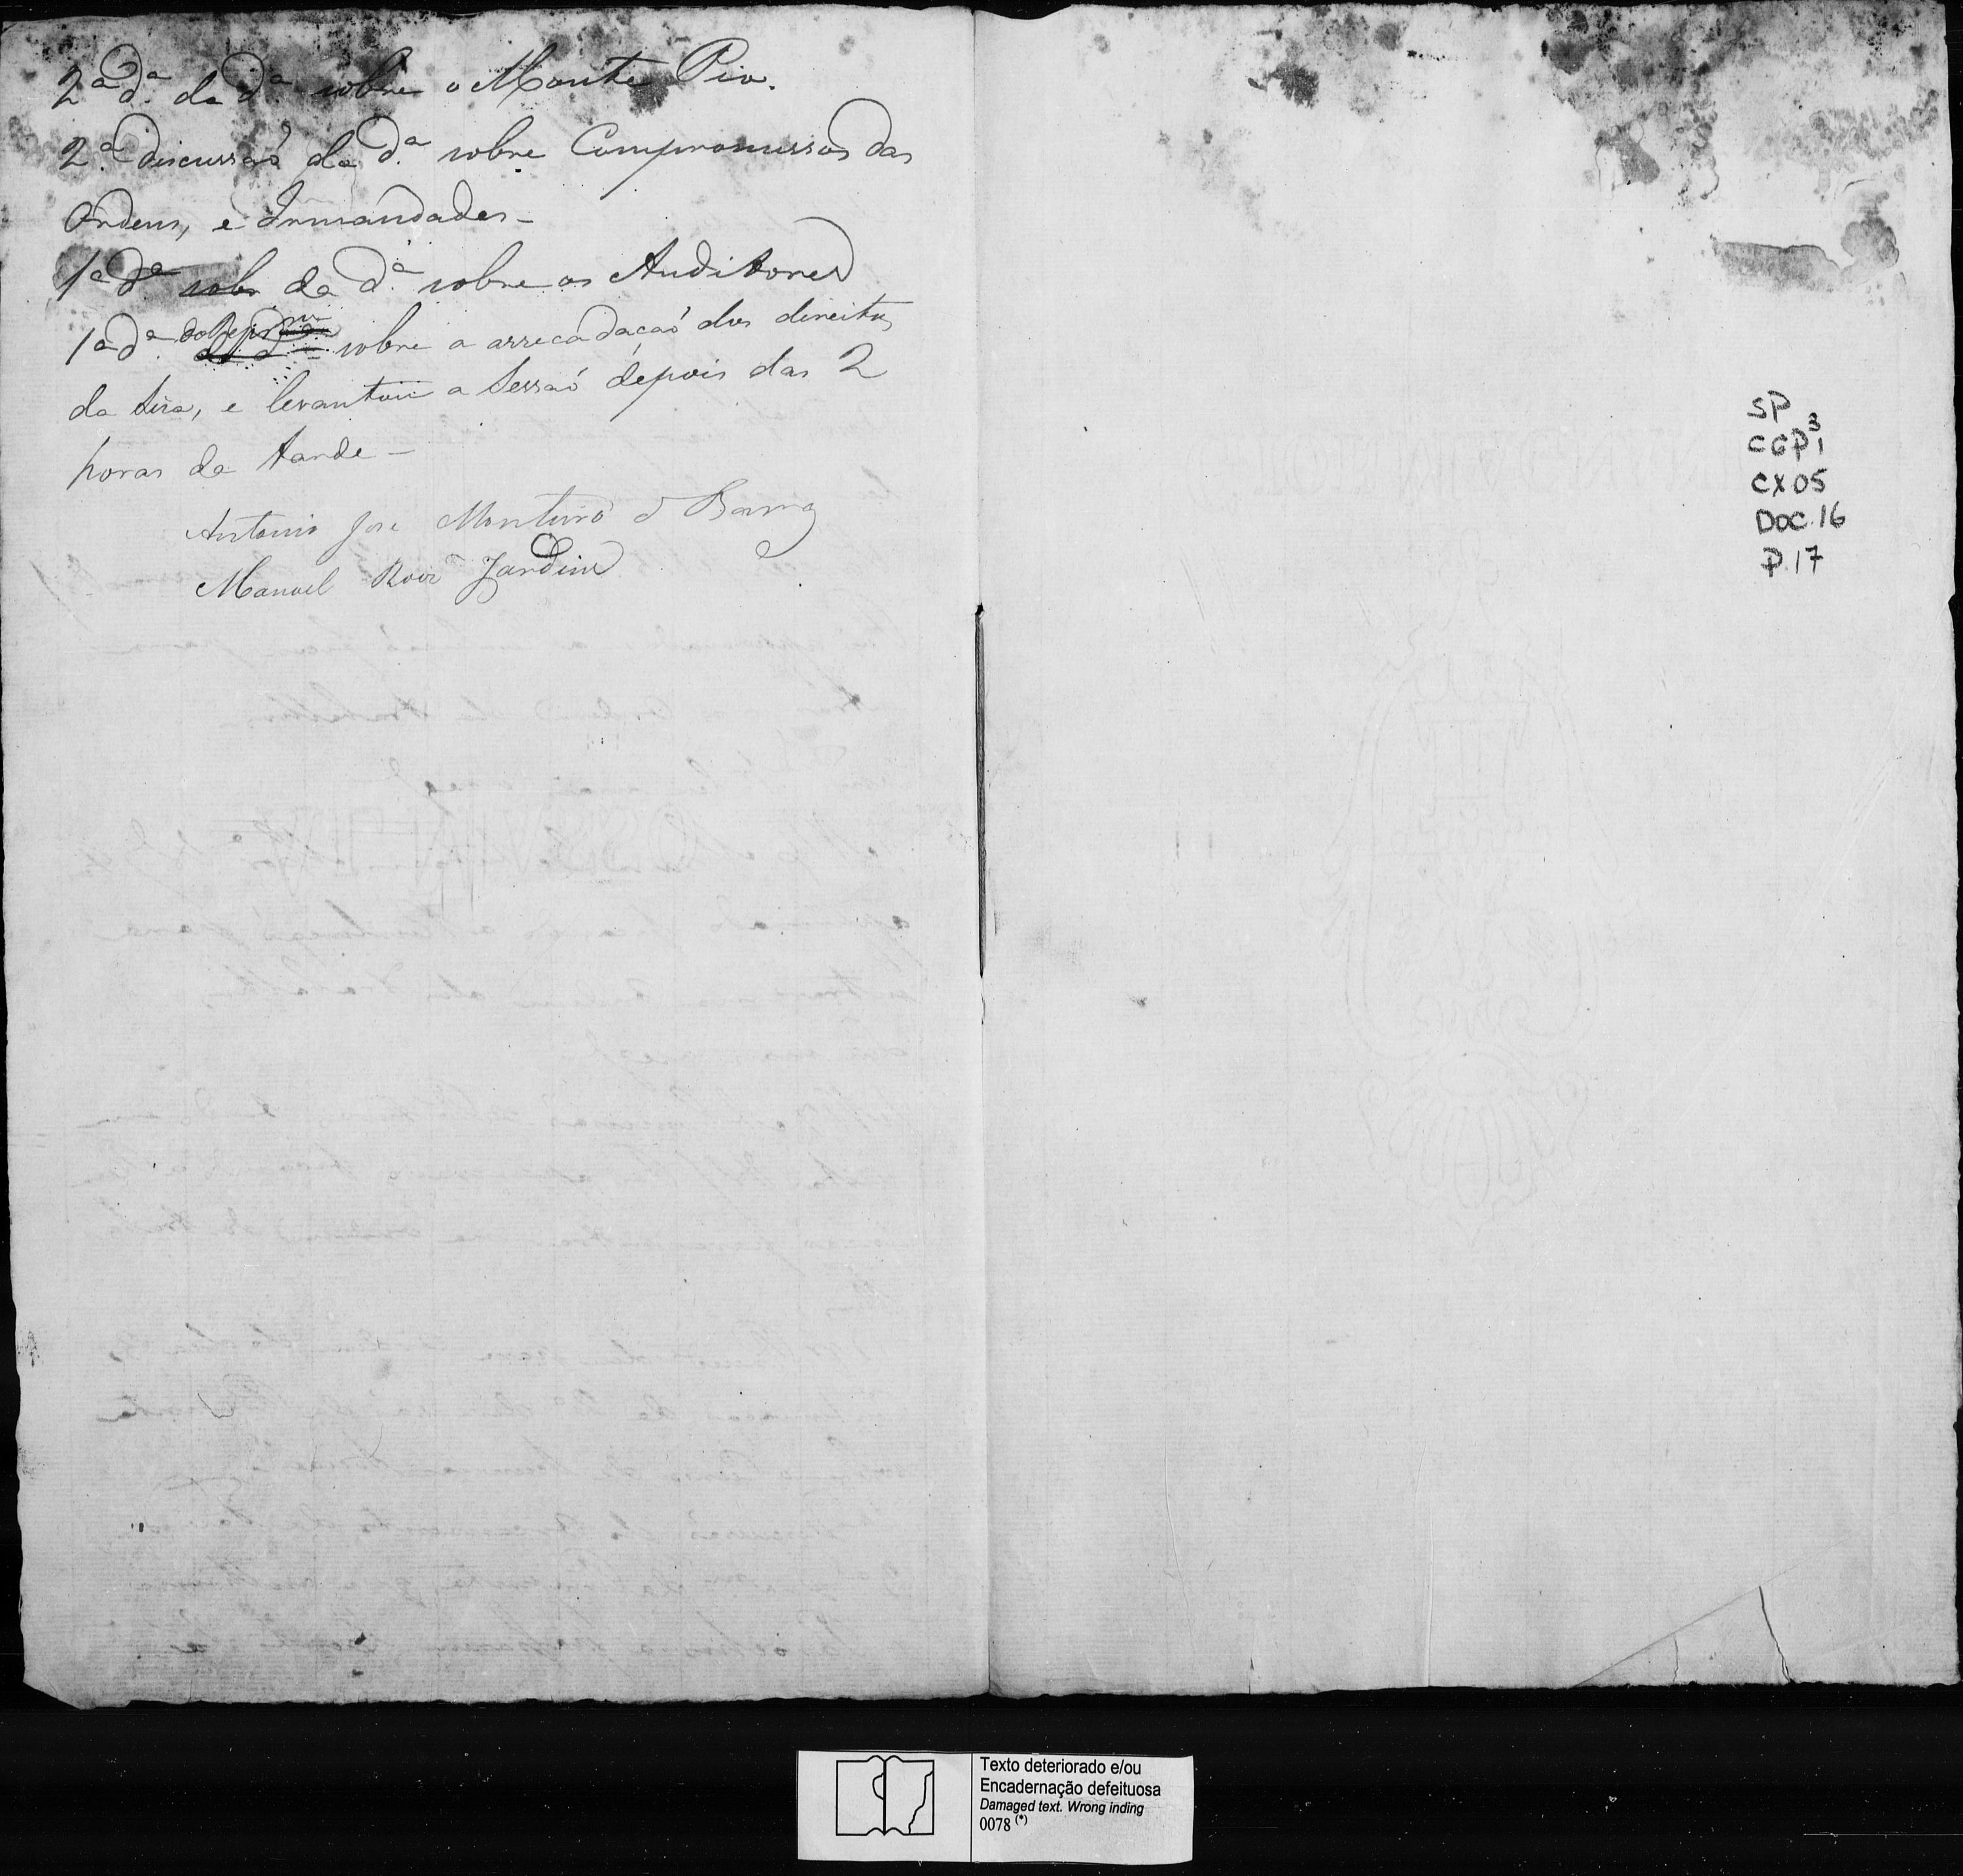 2ª dª da dª sobre o Monte Pio.
2ª discussaõ da dª sobre Compromissos das
Ordens, e Irmandades –
1ª dª sobr da dª sobre os Auditores
1ª dª sobre a arrecadaçaõ dos direitos
da Siza, e levantou a Sessaõ depois das 2
horas da tarde –
Antonio Jose Monteiro d Barros
Manoel Roiz Jardim
SP
CGP3
1
CX05
DOC.16
P.17
Texto deteriorado e/ou
Encadernação defeituosa
Damaged text. Wrong inding
0078 (*)